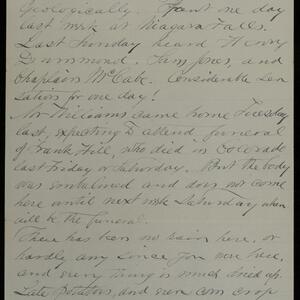 Geologically. Spent one day
last week at Niagara Falls.
Last Sunday heard Henry
Drummond, Sam Jones, and
Chaplain McCabe. Considerable sen
sation for one day!
Mr Williams came home Tuesday
last, expecting to attend funeral
of Frank Hill, who died in Colorado
last Friday or Saturday. But the body
was embalmed and does not come
here until next week Saturday when
will be the funeral.
There has been no rain here, or
hardly any since you were here,
and every thing is much dried up.
Late potatoes, and even corn crop